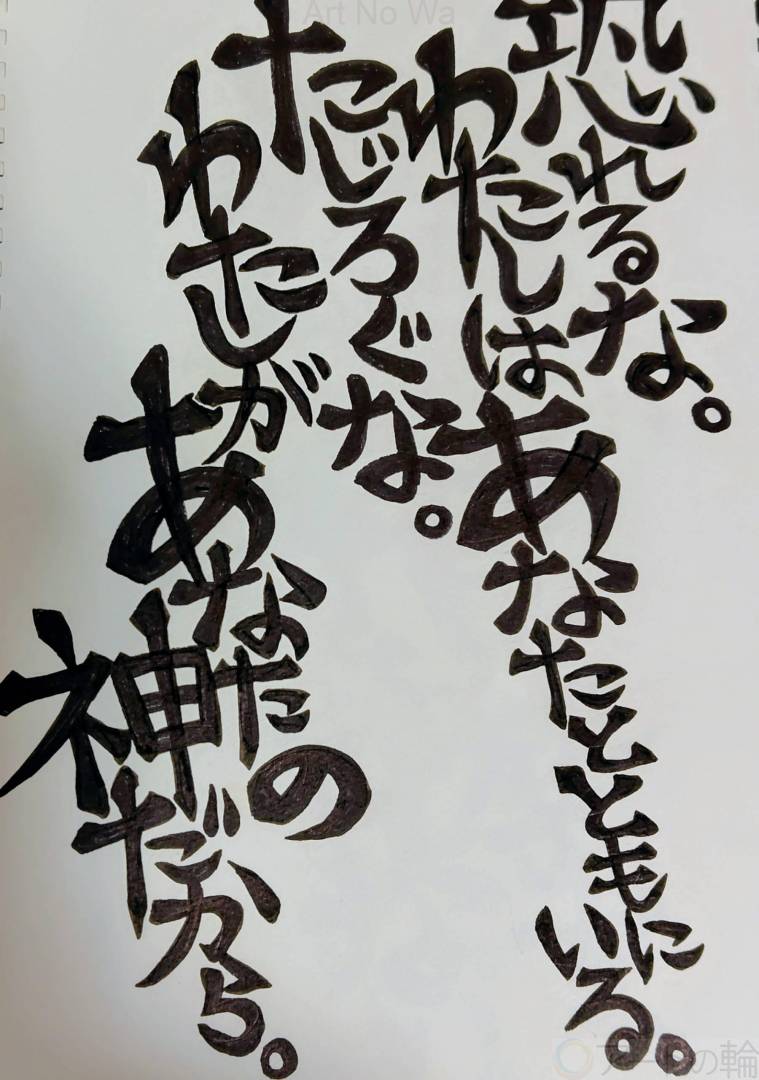 恐れるな。
わたしはあなたとともにいる。
たじろぐな。
わたしがあなたの神だから。
Art No Wa
アートの輪